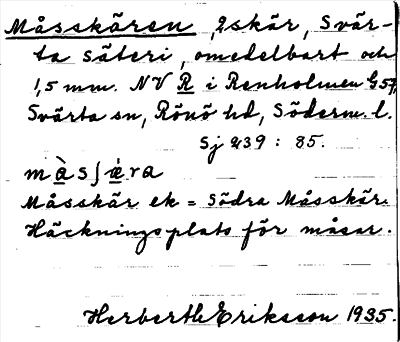 Måsskären, 2 skär, Svär-
ta säteri, omedelbart och
1,5 mm. NV R i Renholmen G 57,
Svärta sn, Rönö hd, Söderm. l.
Sj 239 : 85.
Måsskär ek = Södra Måsskär.
Häckningsplats för måsar.
Herberth Eriksson 1935.